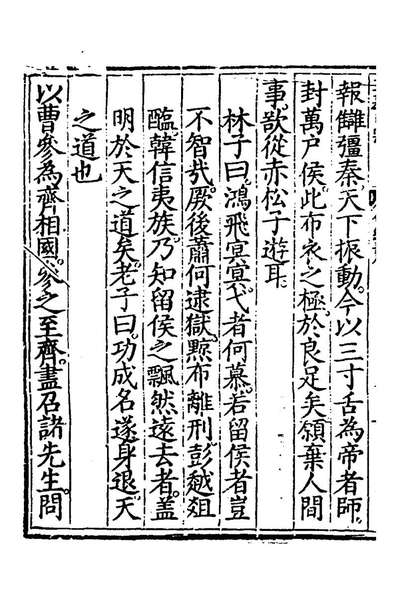 報讎彊秦天下振動今以三寸舌為帝者師
封萬戸侯此布衣之極於良足矣願棄人間
事欲從赤松子遊耳
林子曰鴻飛冥冥弋者何慕若留侯者豈
不智哉厥後蕭何逮獄黥布離刑彭越俎
醢韓信夷族乃知留侯之飄然遠去者蓋
明於天之道矣老子曰功成名遂身退天
之道也
以曹參為齊相國參之至齊盡召諸先生問